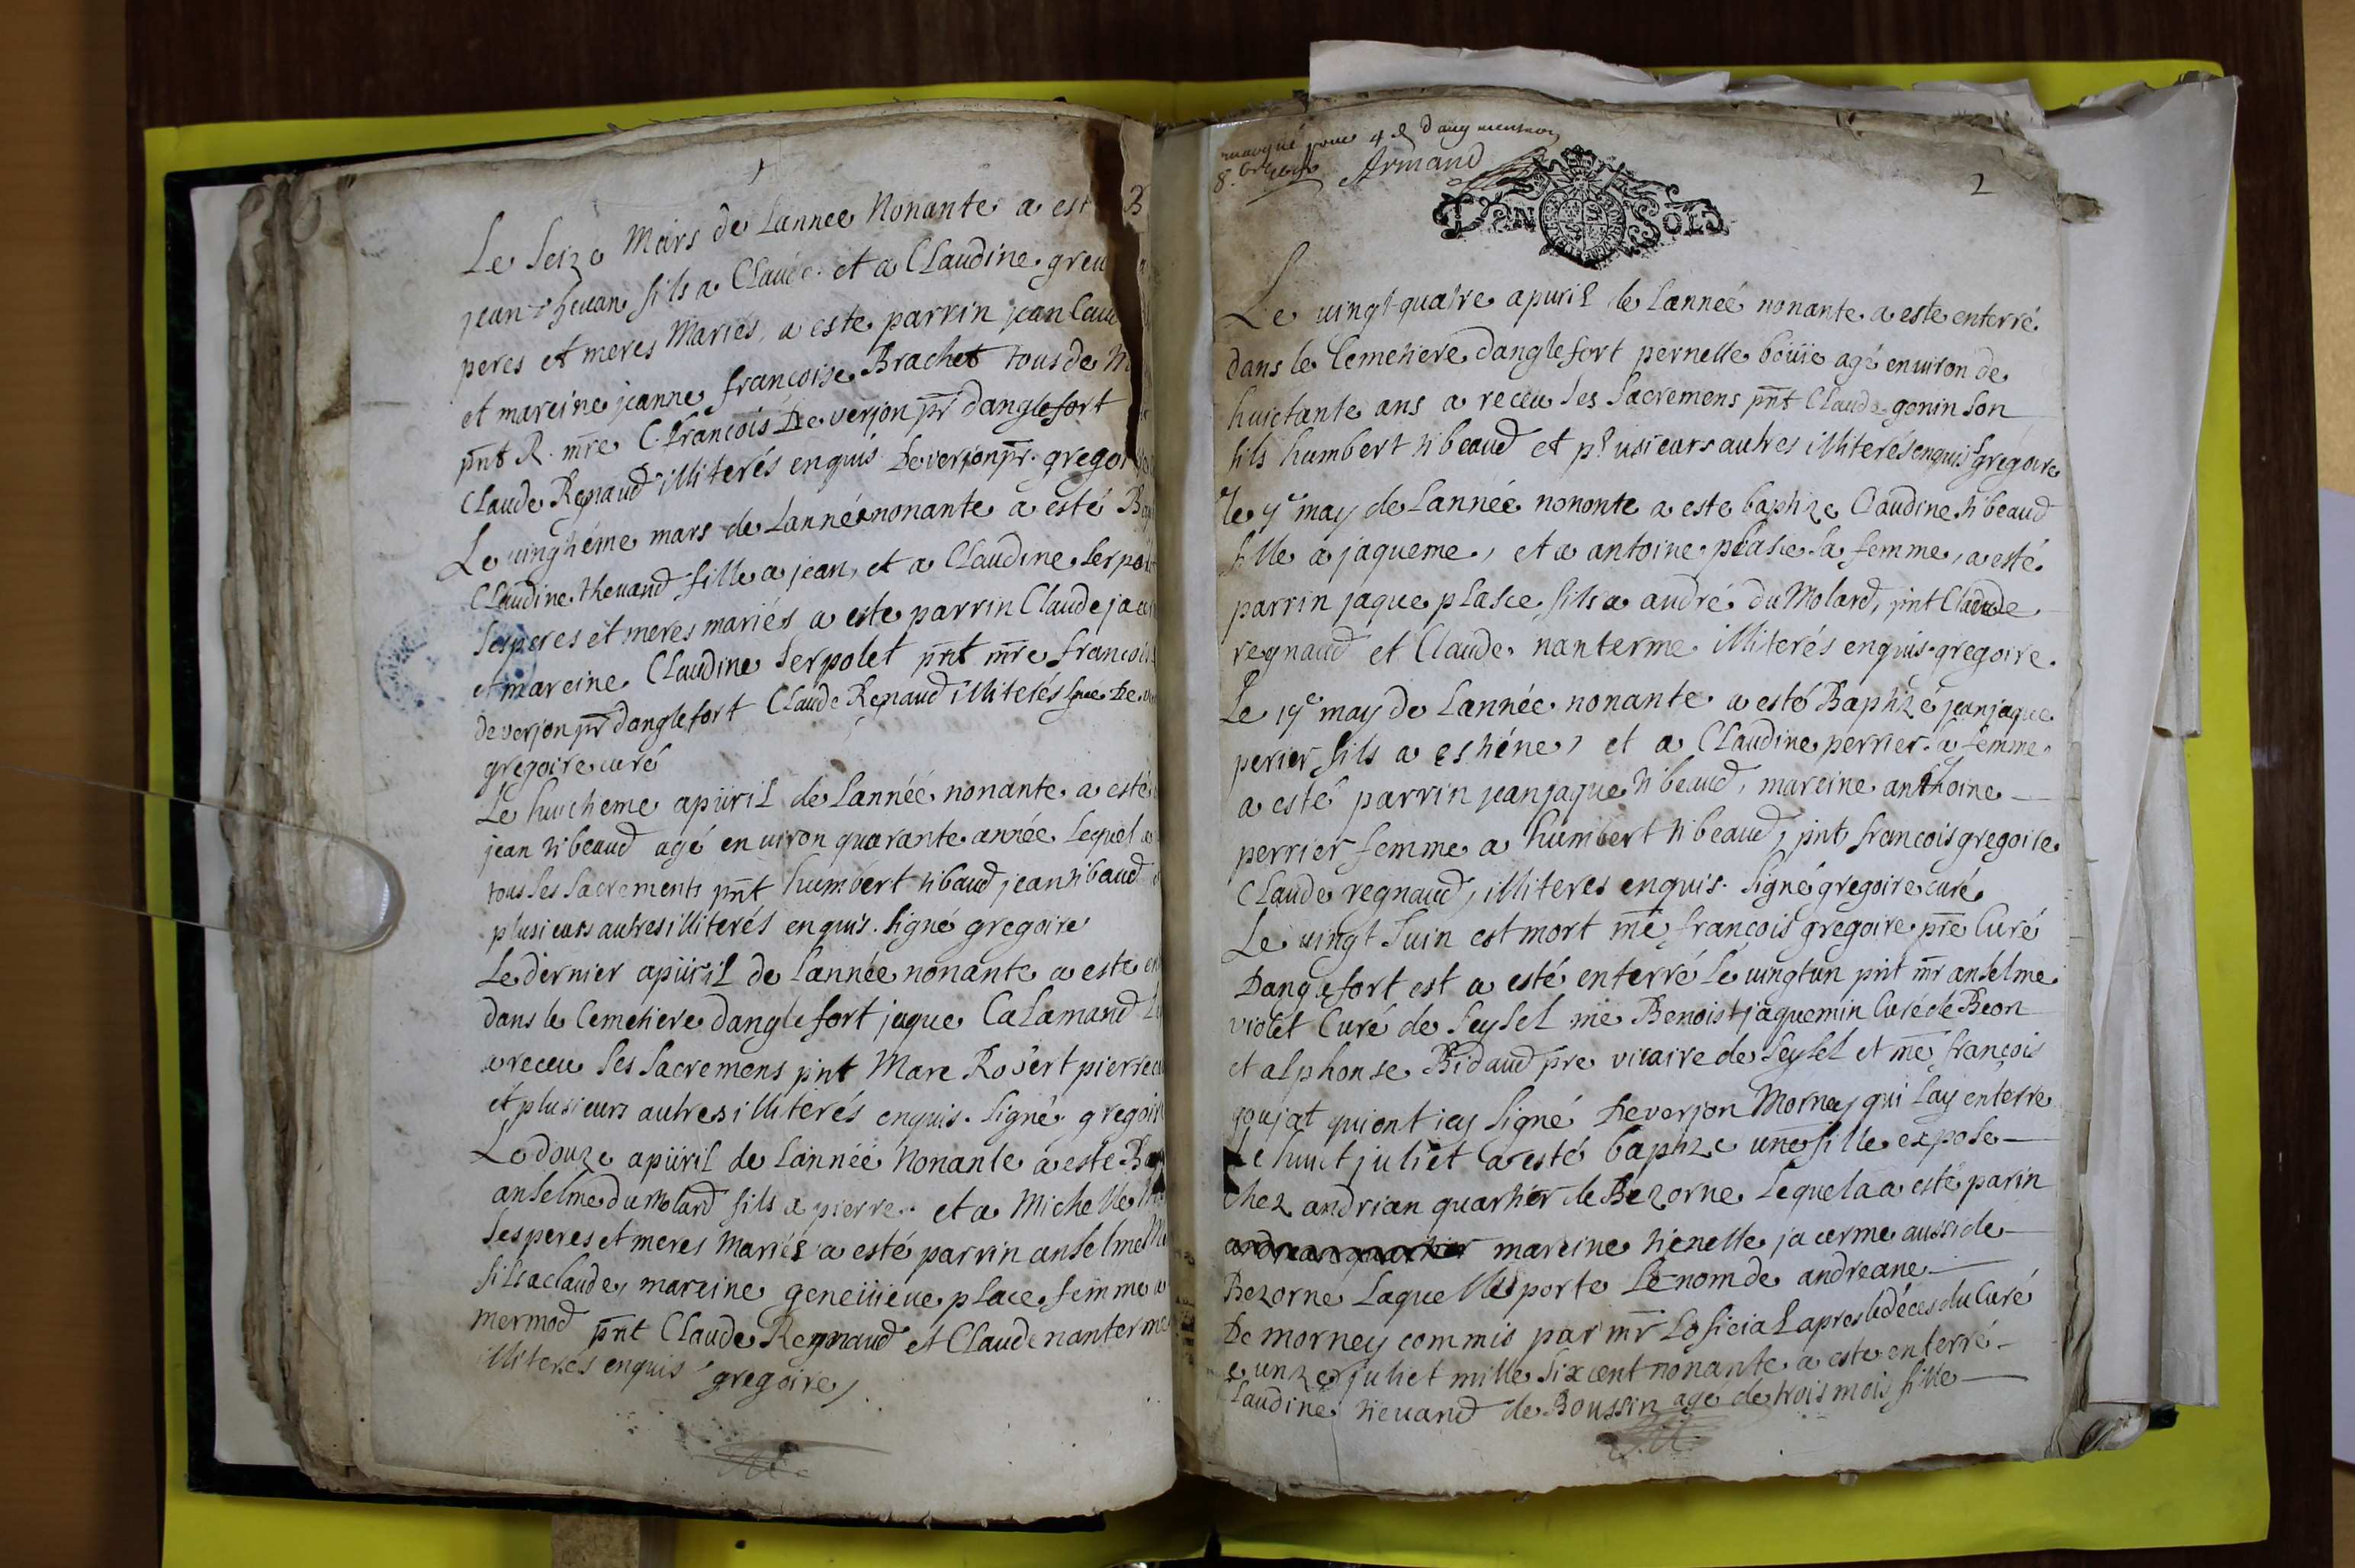 1
Le seize Mars de Lannee Nonante a est B
jean thevan fils a Claude et a Claudine greu
peres et meres Mariés, a este parrin jean Clau
et mareine jeanne françoise Brachet tous de
pnt R. mre C. francois De verjon pr danglefort
Claude Regnaud illiterés enquis Deverjon pr. gregoi
Le vingtiéme mars de Lannée nonante a esté Ba
Claudine thevand fille a jean, et a Claudine serpol
ses peres et meres mariés a este parrin Claude ja
et mareine Claudine serpolet pnt mre francois
de verjon pr danglefort Claude Regnaud illiterés De
gregoire curé
Le huictieme apüril de Lannéé nonante a esté
jean tibeaud agé environ quarante année Lequel a
tous ses sacrements pnt humbert tibaud jean tibaud
plusieurs autres illiterés enquis. signé gregoire
Le dernier apüril de Lannée nonante a este en
dans le Cemetiere danglefort jaque Calamand
a receu ses sacremens pnt Marc Robert pierre
et plusieurs autres illiterés enquis. signé gregoire
Le douze apüril de Lannéé Nonante a este Ba
anselme du molard fils a pierre. et a Michelle
ses peres et meres Mariés a esté parrin anselme Mo
fils a claude, mareine geneviieve place femme a
mermod pnt Claude Regnaud et Claude nanterme
illiterés enquis gregoire
marqué pour 4 d daugmentaon
Armand
DAIN SOLS
2
Le vingt-quatre apuril de Lannéé nonante a este enterré
dans le Cemetiere danglefort pernelle boüie agé environ de
huictante ans a receu ses sacremens pnt Claude gonin son
fils humbert tibeaud et plusieurs autres illiterés enquis gregoire
Le 9e may de Lannéé nononte a este baptize Claudine tibeaud
fille a jaqueme, et a antoine plasce sa femme, a esté
parrin jaque plasce fils a andré du Molard, pnt Claude
regnaud et Claude nanterme illiterés enquis gregoire.
Le 19e may de Lannée nonante a esté Baptizé jean jaque
perier fils a estiéne, et a Claudine perrier sa femme
a esté parrin jean jaque tibeaud, mareine anthoine
perrier femme a humbert tibeaud, pnt francois gregoire
Claude regnaud, illiteres enquis. signé gregoire curé
Le vingt Juin est mort me françois gregoire pre Curé
Danglefort est a esté enterré Le vingtun pnt mr anselme
violet Curé de seysel me Benoist jaquemin Curé de Beon
et alphonse Bidaud pre vicaire de seysel et me françois
goujat qui ont icy signé Deverjon Mornay qui Lay enterre
Le huict juliet a esté baptize une fille expose
chez andrian quartier de Bezorne Lequel a a esté parin
mareine tienelle jacerme aussi de
Bezorne Laquelle porte Le nom de andreane
De morney commis par mr Loficial apres le déces du Curé
Le unze juliet mille six cent nonante a este enterré
Claudine tievand de Boussin agé de trois mois fille